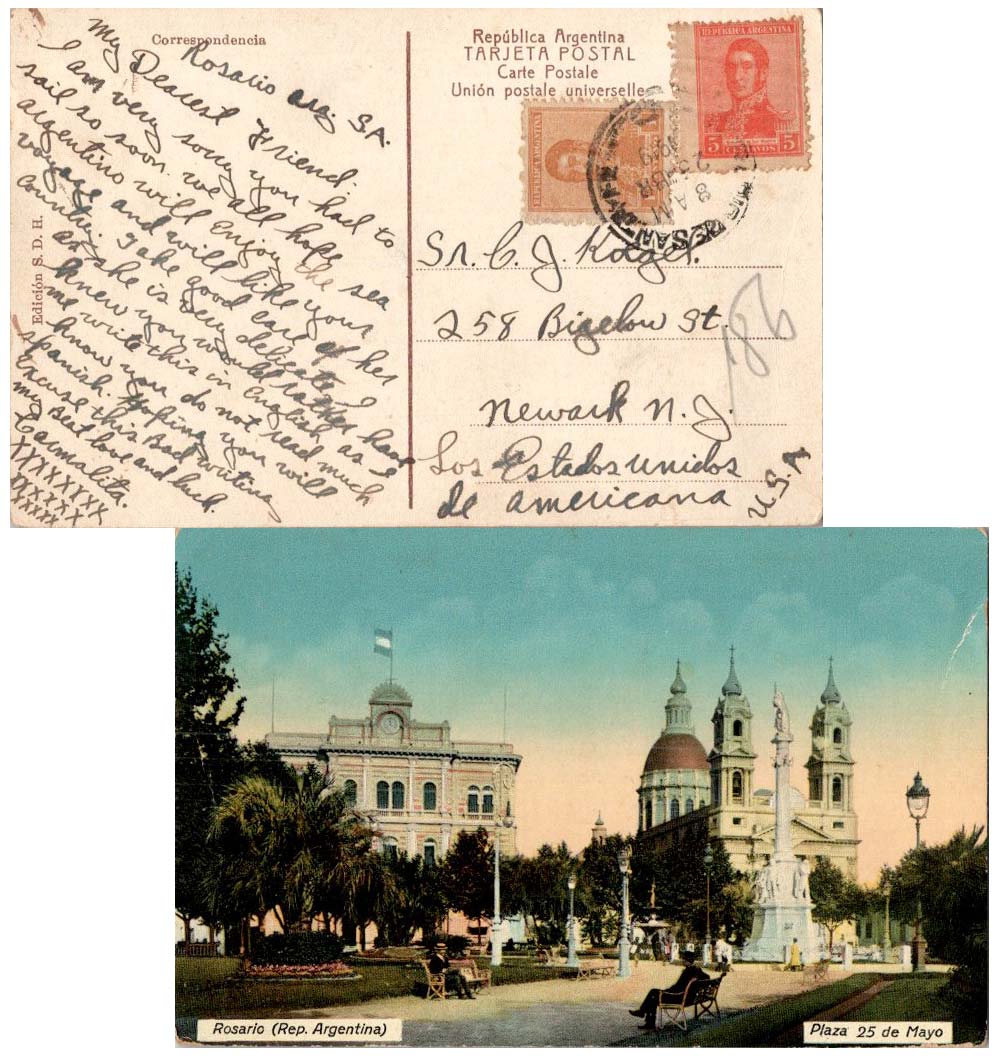 Correspondencia
Rosario Arg. S.A.
My Dearest Friend.
I am very sorry you had to
sail so soon. we all hope
argentino will enjoy the sea
voyage and will like your
country. Take good care of her
as she is very delicate. I
knew you would rather have
me write this in English as I
know you do not read much
Spanish. Hoping you will
Excuse this Bad writing
my Best love and luck.
Carmalita.
XXXXXXX
XXXXX
XXXXX
Edición S. D. H.
República Argentina
TARJETA POSTAL
Carte Postale
Unión postale universelle
REPÚBLICA ARGENTINA
5 CENTAVOS 5
REPÚBLICA ARGENTINA
8 AM
Sr. C. J.
258 Bigelow St.
Newark N. J.
Los Estados unidos
de americana
U.S.A
186
Rosario (Rep. Argentina)
Plaza 25 de Mayo